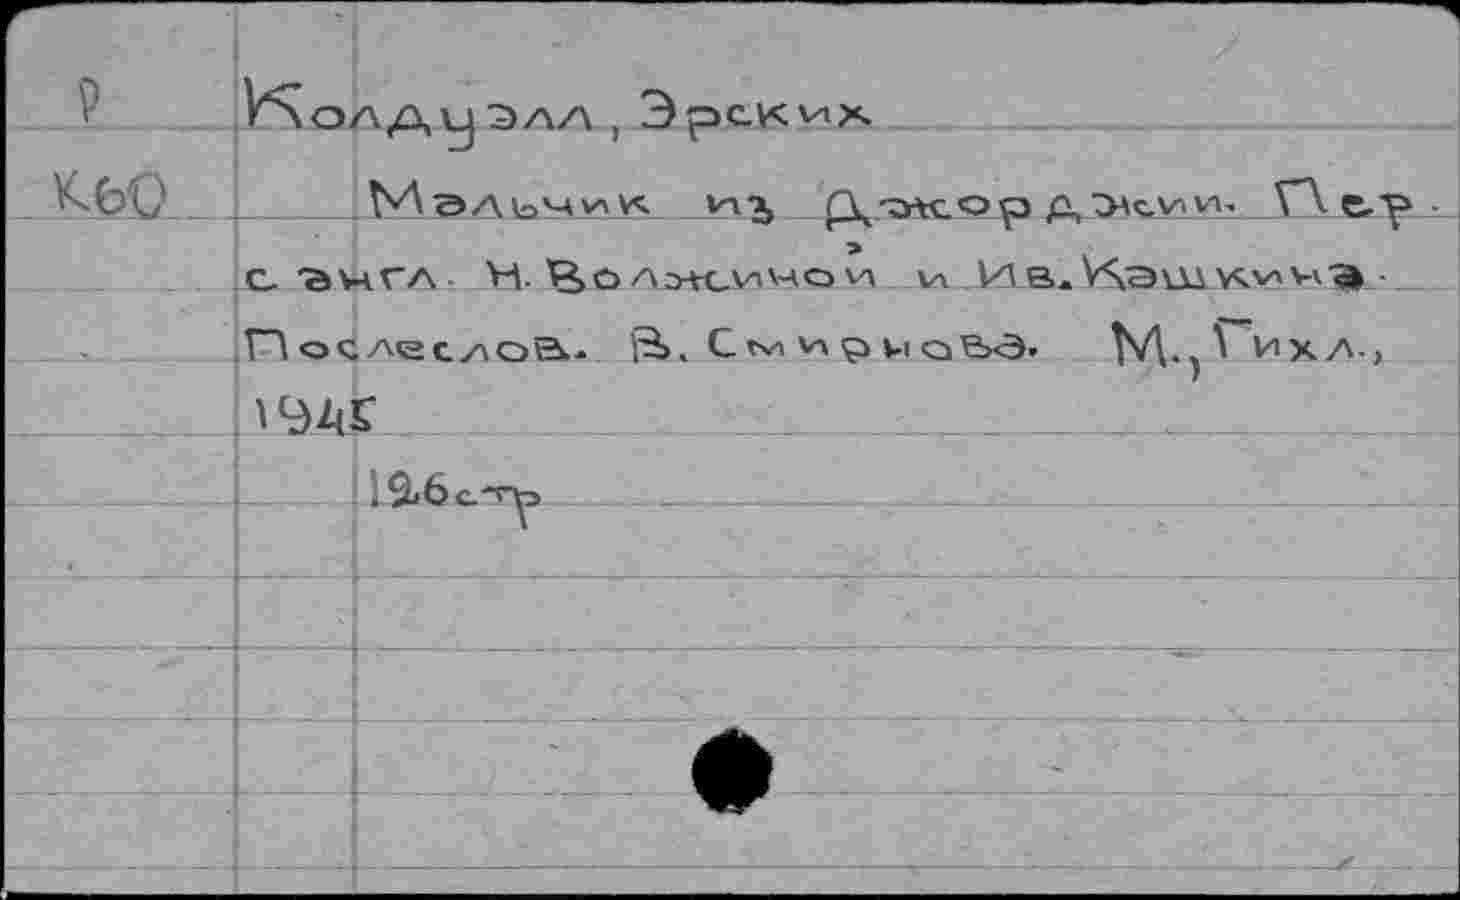 Р Колдуэлл, Эрских
К60 Мальчик из Джорджии. Пер.
с англ. Н. Волжиной и Ив. Кашкина.
Послеслов. В. Смирнова. М., Гихл.,
1945
126 стр